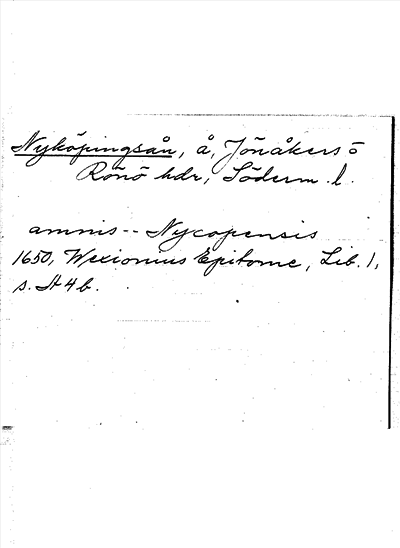 Nyköpingsån, å, Jönåkers o
Rönö hdr, Söderm. l.
amnis -- Nycopensis
1650, Wexionius Epitome, Lib. 1,
s. A 4 b.